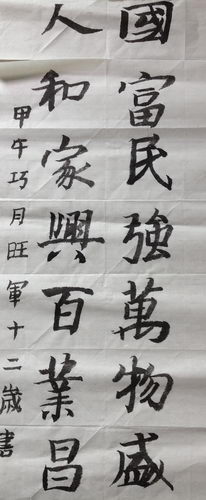 國富民強萬物盛
人和家興百業昌
甲午巧月旺軍十二歲書